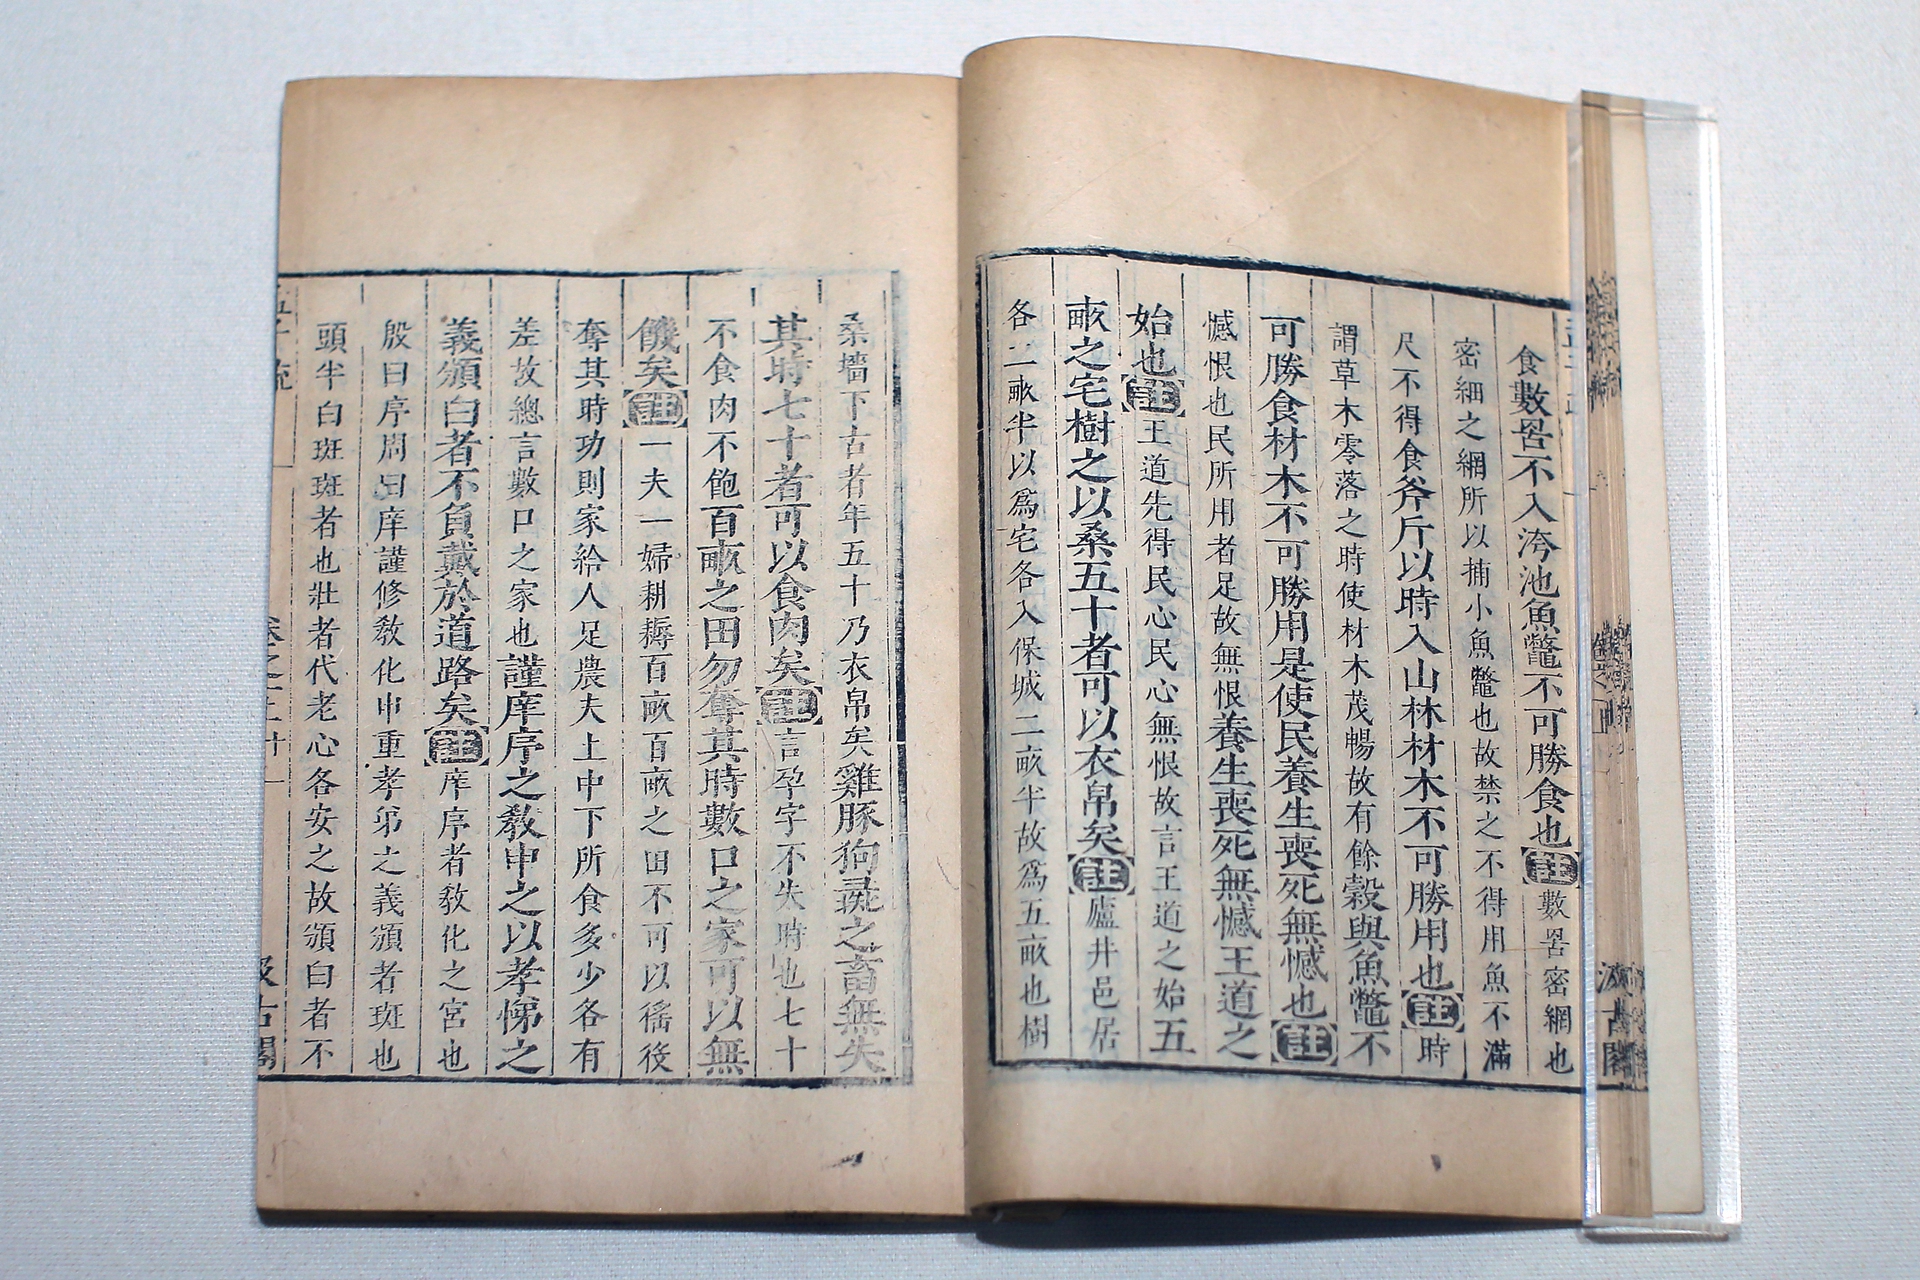 食數罟不入洿池魚鼈不可勝食也註數罟密網也
密細之網所以捕小魚鼈也故禁之不得用魚不滿
尺不得食斧斤以時入山林材木不可勝用也註時
謂草木零落之時使材木茂暢故有餘穀與魚鼈不
可勝食材木不可勝用是使民養生喪死無憾也註
憾恨也民所用者足故無恨養生喪死無憾王道之
始也註王道先得民心民心無恨故言王道之始五
畝之宅樹之以桑五十者可以衣帛矣註廬井邑居
各二畝半以爲宅各入保城二畝半故爲五畝也樹
桑墻下古者年五十乃衣帛矣雞豚狗彘之畜無失
其時七十者可以食肉矣註言孕字不失時也七十
不食肉不飽百畝之田勿奪其時數口之家可以無
饑矣註一夫一婦耕耨百畝百畝之田不可以徭役
奪其時功則家給人足農夫上中下所食多少各有
差故總言數口之家也謹庠序之敎申之以孝悌之
義頒白者不負戴於道路矣註庠序者敎化之宮也
殷曰序周曰庠謹修敎化申重孝弟之義頒者斑也
頭半白斑斑者也壯者代老心各安之故頒白者不
汲古閣